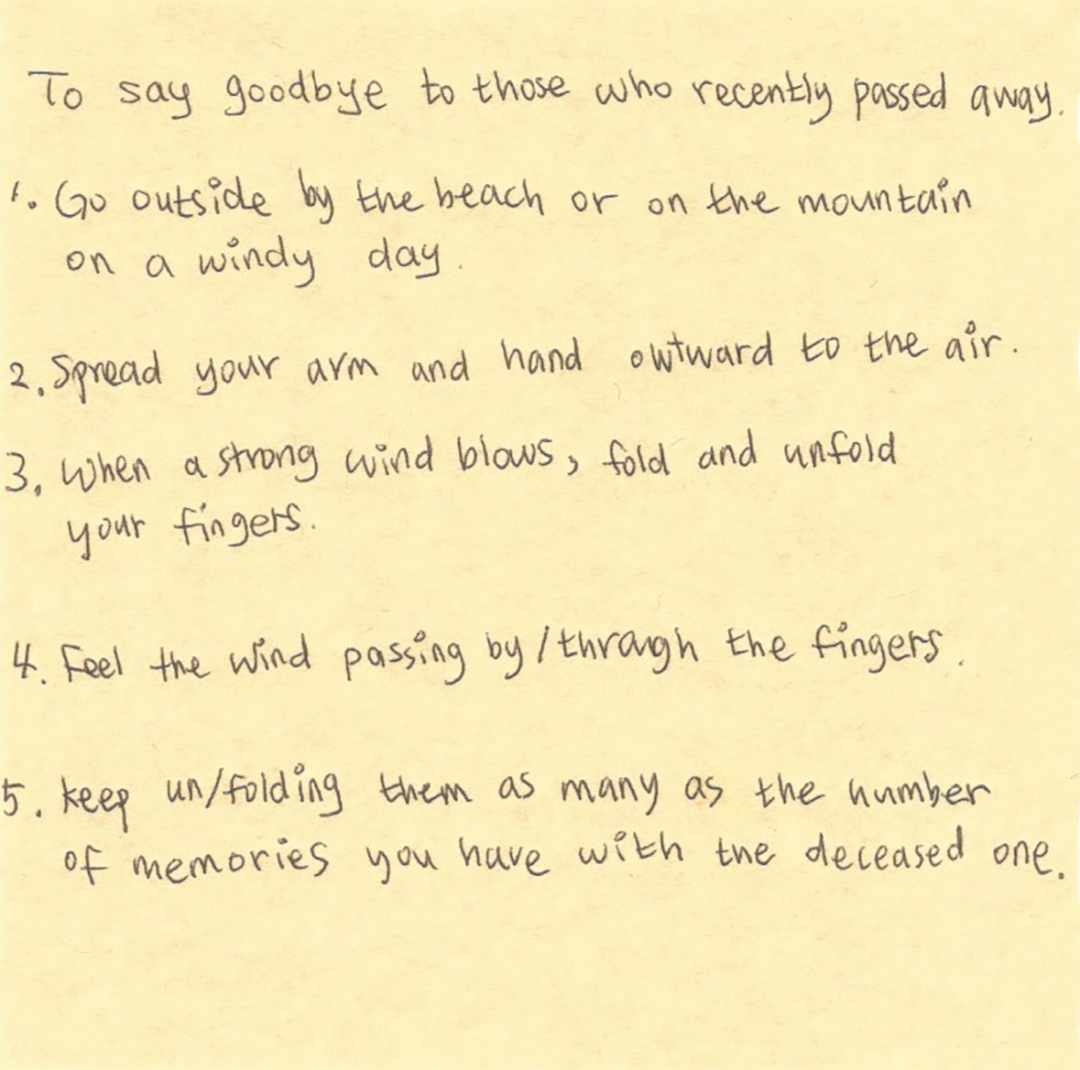 To say goodbye to those who recently passed away.
1. Go outside by the beach or on the mountain
on a windy day.
2. Spread your arm and hand owtward to the air.
3. When a strong wind blows, fold and unfold
your fingers.
4. Feel the wind passing by/through the fingers.
5. keep un/folding them as many as the number
of memories you have with the deceased one.